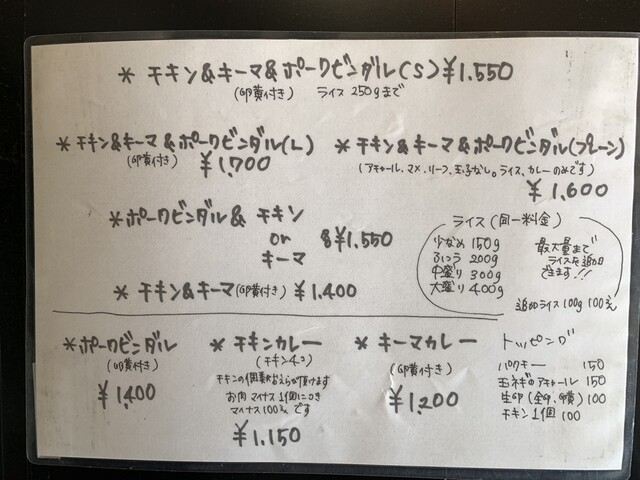 * チキン&キーマ&ポークビンダル(S) ¥1.550
(卵黄付き) ライス 250gまで
* チキン&キーマ&ポークビンダル(L)
(卵黄付き) ¥1,700
* チキン&キーマ&ポークビンダル(プレーン)
(アチャール、マメ、リーフ、玉子なし。ライス、カレーのみです)
¥1,600
* ポークビンダル & チキン
or
キーマ
¥1,550
* チキン&キーマ(卵黄付き) ¥1,400
ライス (同一料金)
少なめ 150g
ふつう 200g
中盛り 300g
大盛り 400g
最大量まで
ライスを追加
できます!!
追加ライス 100g 100えん
* ポークビンダル
(卵黄付き)
¥1400
* チキンカレー
(チキン4コ)
チキンの個数おえらび頂けます
お肉 マイナス 1個につき
マイナス100えん です
¥1,150
* キーマカレー
(卵黄付き)
¥1,200
トッピング
パクチー 150
玉ネギのアチャール 150
生卵 (全卵、卵黄) 100
チキン 1個 100